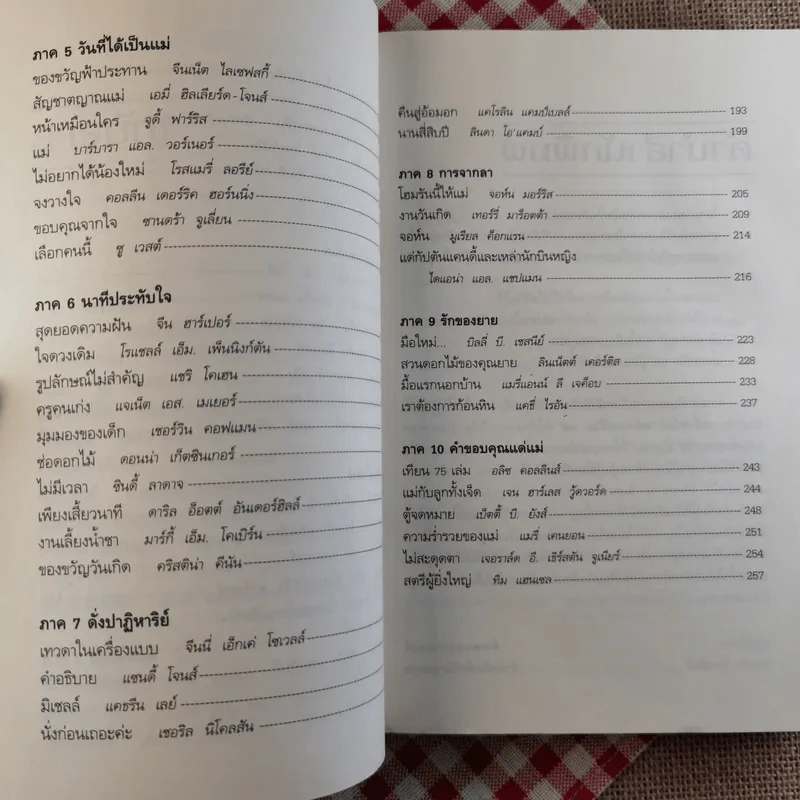 ภาค 5 วันที่ได้เป็นแม่
ของขวัญฟ้าประทาน จีนเน็ต ไลเซฟสกี้
สัญชาตญาณแม่ เอมี่ ฮิลเลียร์ด-โจนส์
หน้าเหมือนใคร จูดี้ ฟาร์ริส
แม่ บาร์บารา แอล. วอร์เนอร์
ไม่อยากได้น้องใหม่ โรสแมรี่ ลอรีย์
จงวางใจ คอลลีน เดอร์ริค ฮอร์นนิ่ง
ขอบคุณจากใจ ซานดร้า จูเลี่ยน
เลือกคนนี้ ซู เวสต์
ภาค 6 นาทีประทับใจ
สุดยอดความฝัน จีน ฮาร์เปอร์
ใจดวงเดิม โรแชลล์ เอ็ม. เพ็นนิงก์ตัน
รูปลักษณ์ไม่สำคัญ แชริ โคเฮน
ครูคนเก่ง แจเน็ต เอส. เมเยอร์
มุมมองของเด็ก เชอร์วิน คอฟแมน
ช่อดอกไม้ ดอนน่า เก็ตซินเกอร์
ไม่มีเวลา ซินดี้ ลาดาจ
เพียงเสี้ยวนาที ดาริล อ็อตต์ อันเดอร์ฮิลล์
งานเลี้ยงน้ำชา มาร์กี้ เอ็ม. โคเบิร์น
ของขวัญวันเกิด คริสติน่า คีนัน
ภาค 7 ดั่งปาฏิหาริย์
เทวดาในเครื่องแบบ จีนนี่ เอ็กเค่ โซเวลล์
คำอธิบาย แซนดี้ โจนส์
มิเชลล์ แคธรีน เลย์
นั่งก่อนเถอะค่ะ เชอริล นิโคลสัน
คืนสู่อ้อมอก แคโรลิน แคมป์เบลล์ 193
นานสี่สิบปี ลินดา โอ'แคมป์ 199
ภาค 8 การจากลา
โฮมรันนี้ให้แม่ จอห์น มอร์ริส 205
งานวันเกิด เทอร์รี่ มาร็อตต้า 209
จอห์น มูเรียล ค็อกแรน 214
แด่กัปตันแคนดี้และเหล่านักบินหญิง
ไดแอน่า แอล. แชปแมน 216
ภาค 9 รักของยาย
มือใหม่... บิลลี่ บี. เชสนีย์ 223
สวนดอกไม้ของคุณยาย ลินเน็ตต์ เคอร์ติส 228
มื้อแรกนอกบ้าน แมรี่แอนน์ ลี เจค็อบ 233
เราต้องการก้อนหิน แคธี่ ไรอัน 237
ภาค 10 คำขอบคุณแด่แม่
เทียน 75 เล่ม อลิซ คอลลินส์ 243
แม่กับลูกทั้งเจ็ด เจน ฮาร์เลส วู้ดวอร์ด 244
ตู้จดหมาย เบ็ตตี้ บี. ยังส์ 248
ความร่ำรวยของแม่ แมรี่ เคนยอน 251
ไม่สะดุดตา เจอราล์ด อี. เธิร์สตัน จูเนียร์ 254
สตรีผู้ยิ่งใหญ่ ทิม แฮนเซล 257